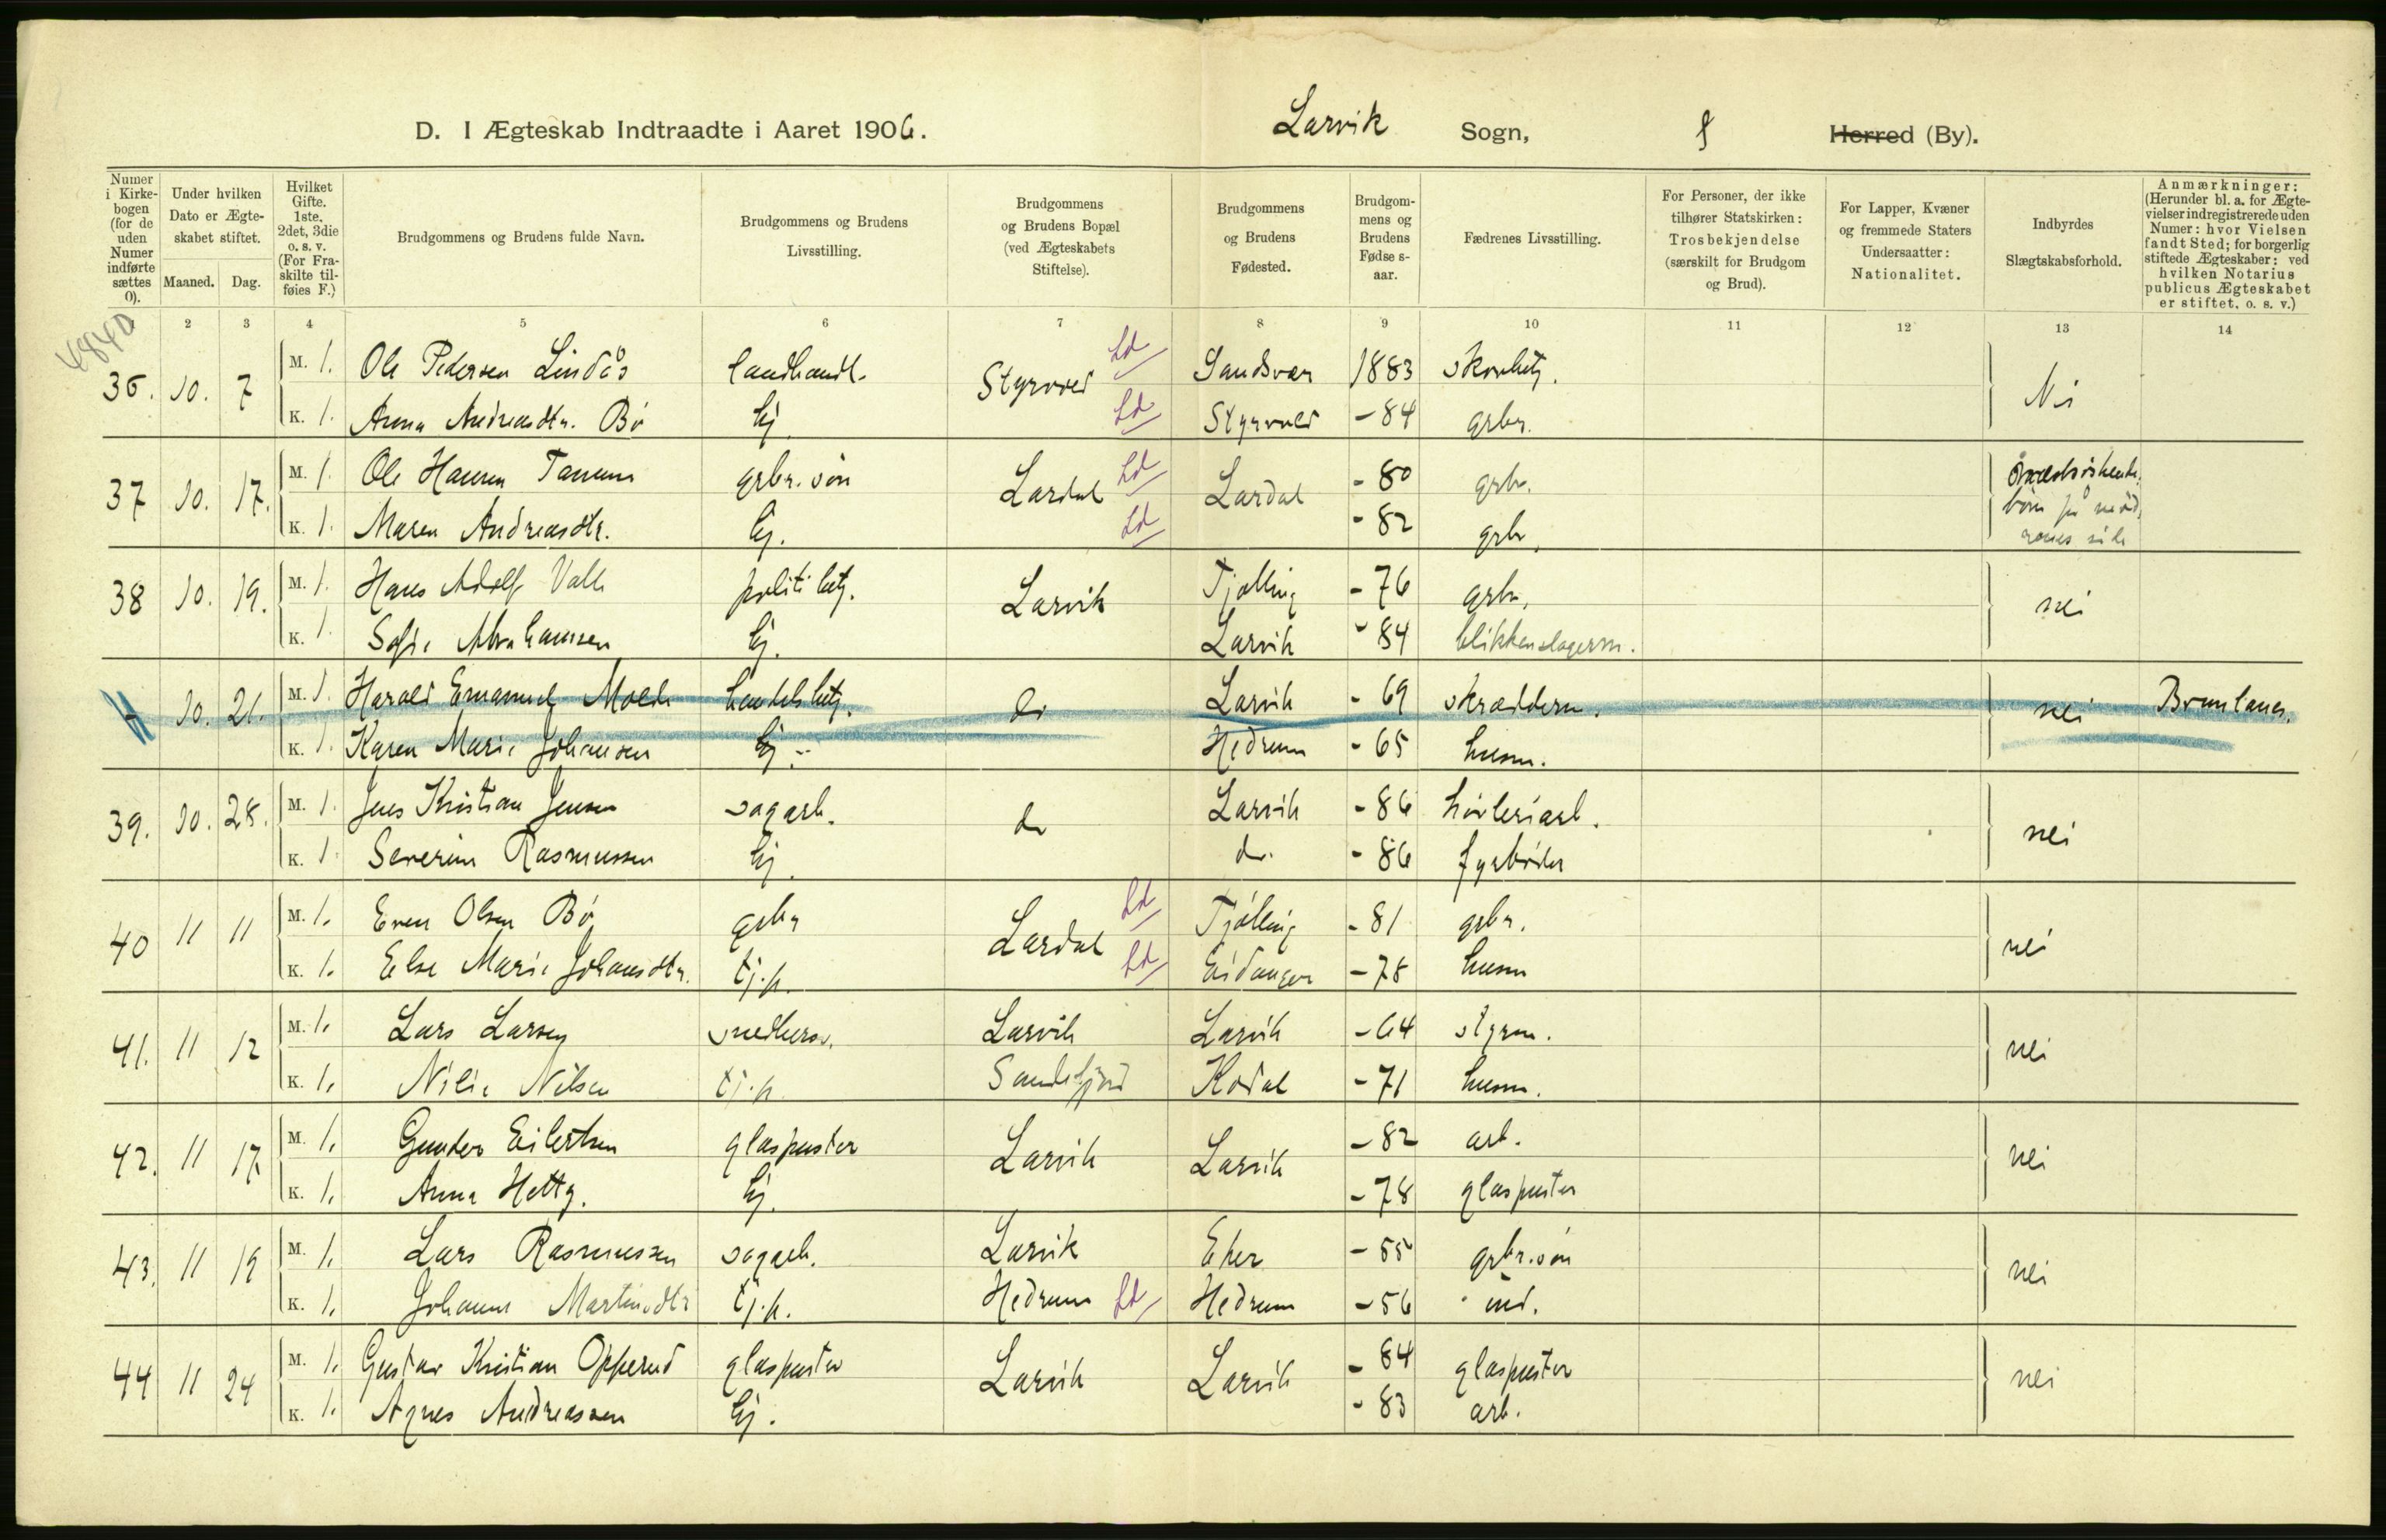 D. I Ægteskab Indtraadte i Aaret 1906. Larvik Sogn, Herred (By).
Numer i Kirke-bogen (for de uden Numer indførte sættes 0).
Under hvilken Dato er Ægte-skabet stiftet.
Maaned. Dag.
Hvilket Gifte. 1ste. 2det, 3die o. s. v. (For Fra-skilte til-føies F.)
Brudgommens og Brudens fulde Navn.
Brudgommens og Brudens Livsstilling.
Brudgommens og Brudens Bopæl (ved Ægteskabets Stiftelse).
Brudgommens og Brudens Fødested.
Brudgom-mens og Brudens Fødse s-aar.
Fædrenes Livsstilling.
For Personer, der ikke tilhører Statskirken: Trosbekjendelse (særskilt for Brudgom og Brud).
For Lapper, Kvæner og fremmede Staters Undersaatter: Nationalitet.
Indbyrdes Slægtskabsforhold.
Anmærkninger: (Herunder bl. a. for Ægte-vielser indregistrerede uden Numer: hvor Vielsen fandt Sted; for borgerlig stiftede Ægteskaber: ved hvilken Notarius publicus Ægteskabet er stiftet, o. s. v.)
2 3 4 5 6 7 8 9 10 11 12 13 14
4840
36. 10. 7 M. 1. Ole Pedersen Lindås landhandl. Styrvold Ld Sandsvær 1883 skovbetj. Nei
K. 1. Anna Andreasdtr. Bø hj. Ld Styrvold -84 grbr.
37 10. 17. M. 1 Ole Hansen Tanum grbr. søn Lardal Ld Lardal -80 grbr.
K. 1. Maren Andreasdtr. hj. Ld -82 grbr.
børn på mød,
rones side
38 10. 19. M. 1. Hans Adolf Valle politibetj. Larvik Tjølling -76 grbr. nei
K. 1. Sofie Abrahamsen hj. Larvik -84 blikkenslagerm.
10. 21. M. 1. Harald Emanuel Molde handelsbetj. do Larvik -69 skræderm. nei Brunlanes.
K. 1. Karen Marie Johansen hj. Hedrum -65 husm.
39. 10. 28. M. 1. Jens Kristian Jensen sagarb. do Larvik -86 høvleriarb. nei
K. 1. Severine Rasmussen hj. do. -86 fyrbøder
40 11 11 M. 1. Even Olsen Bø grbr Lardal Ld Tjølling -81 grbr. nei
K. 1. Else Marie Johansdtr. tj.p. Ld Eidanger -78 husm
41. 11 12 M. 1. Lars Larsen snedkersv. Larvik Larvik -64 styrm. nei
K. 1. Nilie Nilsen tj.p. Sandefjord Kodal -71 husm.
42. 11 17 M. 1. Gunder Eilertsen glaspuster Larvik Larvik -82 arb. nei
K. 1. Anna Hetty. hj. -78 glaspuster
43. 11 19 M. 1. Lars Rasmussen sagarb. Larvik Eker -55 grbr. søn nei
K. 1. Johanne Martinsdtr tj.p. Hedrum Ld Hedrum -56 ind.
44 11 24 M. 1. Gustav Kristian Opperud glaspuster Larvik Larvik -84 glaspuster nei
K. 1. Agnes Andreassen hj. -83 arb.